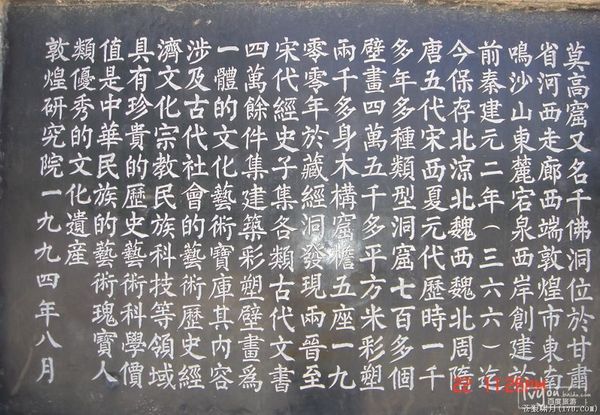 莫高窟又名千佛洞位於甘肅
省河西走廊西端敦煌市東南
鳴沙山東麓宕泉西岸創建於
前秦建元二年(三六六)迄
今保存北涼北魏西魏北周隋
唐五代宋西夏元代歷時一千
多年多種類型洞窟七百多個
壁畫四萬五千多平方米彩塑
兩千多身木構窟檐五座一九
零零年於藏經洞發現兩晉至
宋代經史子集各類古代文書
四萬餘件集建築彩塑壁畫爲
一體的文化藝術寶庫其內容
涉及古代社會的藝術歷史經
濟文化宗教民族科技等領域
具有珍貴的歷史藝術科學價
值是中華民族的藝術瑰寶人
類優秀的文化遺產
敦煌研究院一九九四年八月
百度旅游